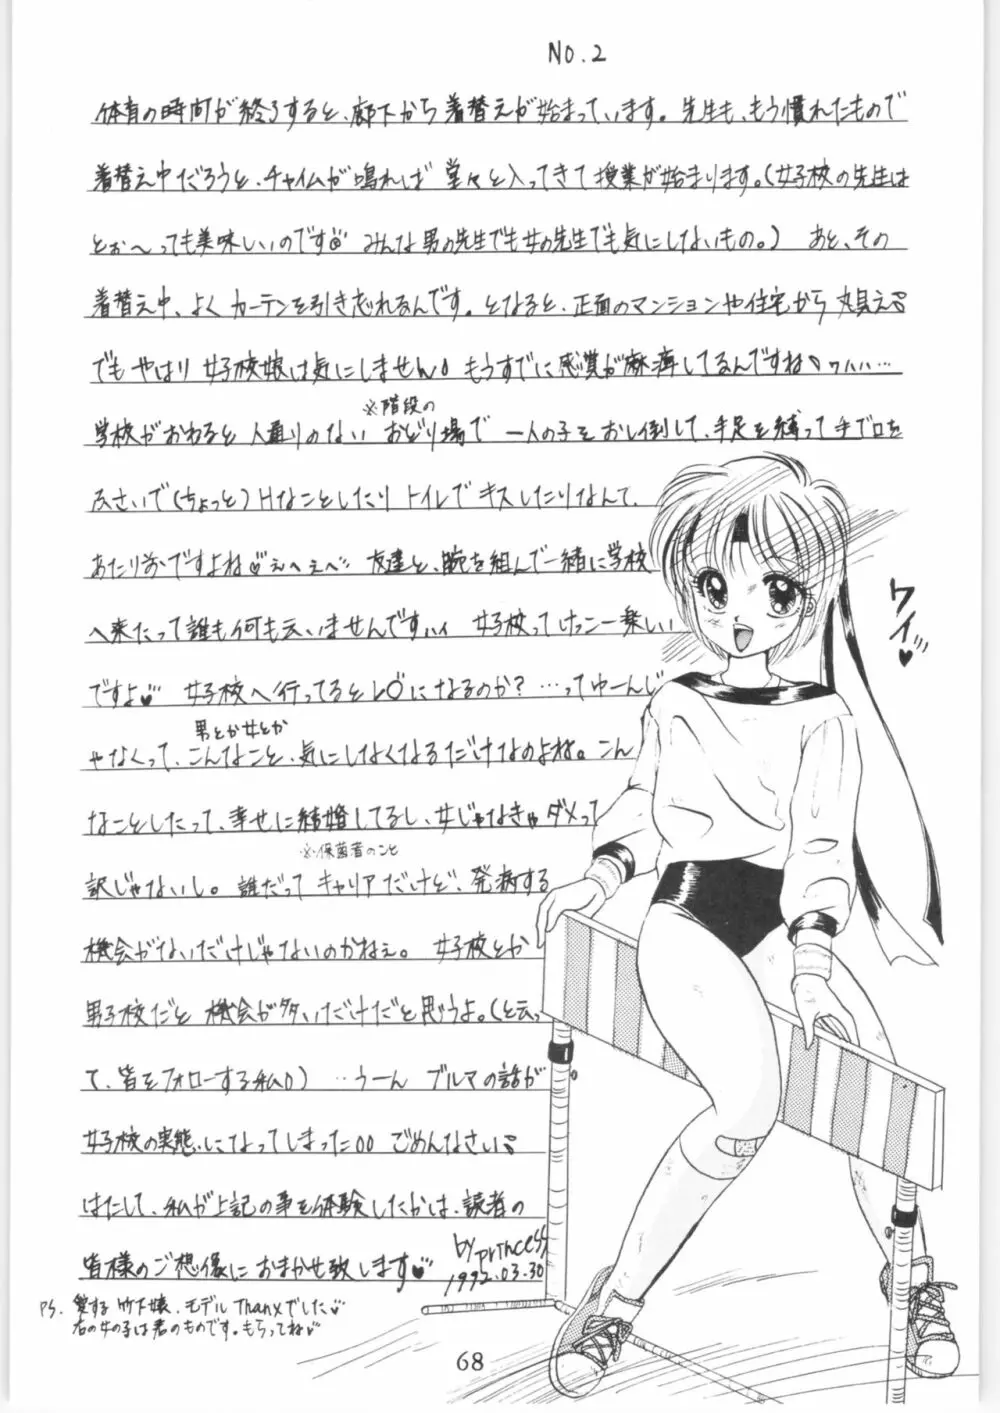 NO.2
体育の時間が終了すると、廊下から着替えが始まっています。先生も、もう慣れたもので
着替え中だろうと、チャイムが鳴れば堂々と入ってきて授業が始まります。(女子校の先生は
とぉ〜っても美味しいのです みんな男の先生でも女の先生でも気にしないもの。) あと、その
着替え中、よくカーテンを引き忘れるんです。となると、正面のマンションや住宅から丸見え
でもやはり女子校娘は気にしません もうすでに感覚が麻痺してるんですね ワハハハ…
※階段の
学校がおわると人通りのないおどり場で一人の子をおし倒して、手足を縛って手で口を
ふさいで(ちょっと)Hなことしたりトイレでキスしたりなんて、
あたりまえですよね♡えへえへ 友達と、腕を組んで一緒に学校
へ来たって誰も何も云いませんですハイ 女子校ってけっこー楽しい
ですよ♡ 女子校へ行ってるとレ○になるのか?…ってゆーんじ
男とか女とか
ゃなくって、こんなこと、気にしなくなるだけなのよね。こん
なことしたって、幸せに結婚してるし、女じゃなきゃダメって
※保菌者のこと
訳じゃないし。誰だってキャリアだけど、発病する
機会がないだけじゃないのかねぇ。女子校とか
男子校だと機会が多いだけだと思うよ。(と云っ
て、皆をフォローする私) …うーん ブルマの話が
女子校の実態になってしまった ごめんなさい
はたして、私が上記の事を体験したかは、読者の
皆様のご想像におまかせ致します♡
by princess
1992.03.30
PS. 愛する竹下嬢、モデルThanxでした
右の女の子は君のものです。もらってね♡
ワーイ♥
68